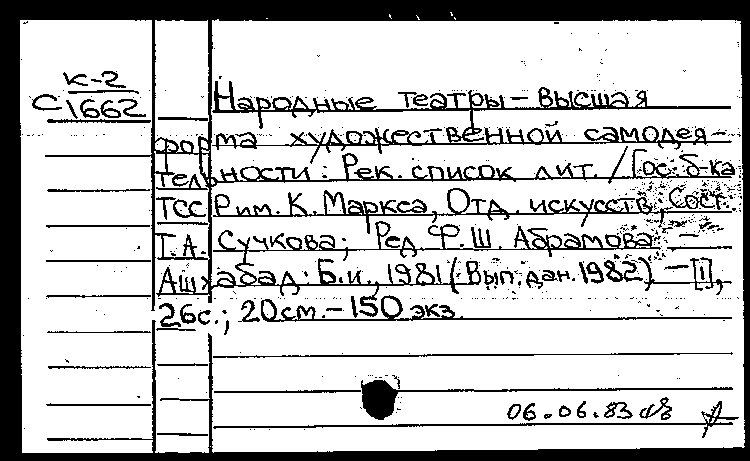 К-2
С 1662
Народные театры – высшая
форма художественной самодея-
тельности: Рек. список лит. / Гос. б-ка
ТССР им. К. Маркса, Отд. искусств; Сост.
Т.А. Сучкова; Ред. Ф.Ш. Абрамова. –
Ашхабад: Б.и., 1981 (Вып. дан. 1982). – [1],
26с.; 20см. – 150 экз.
06.06.83